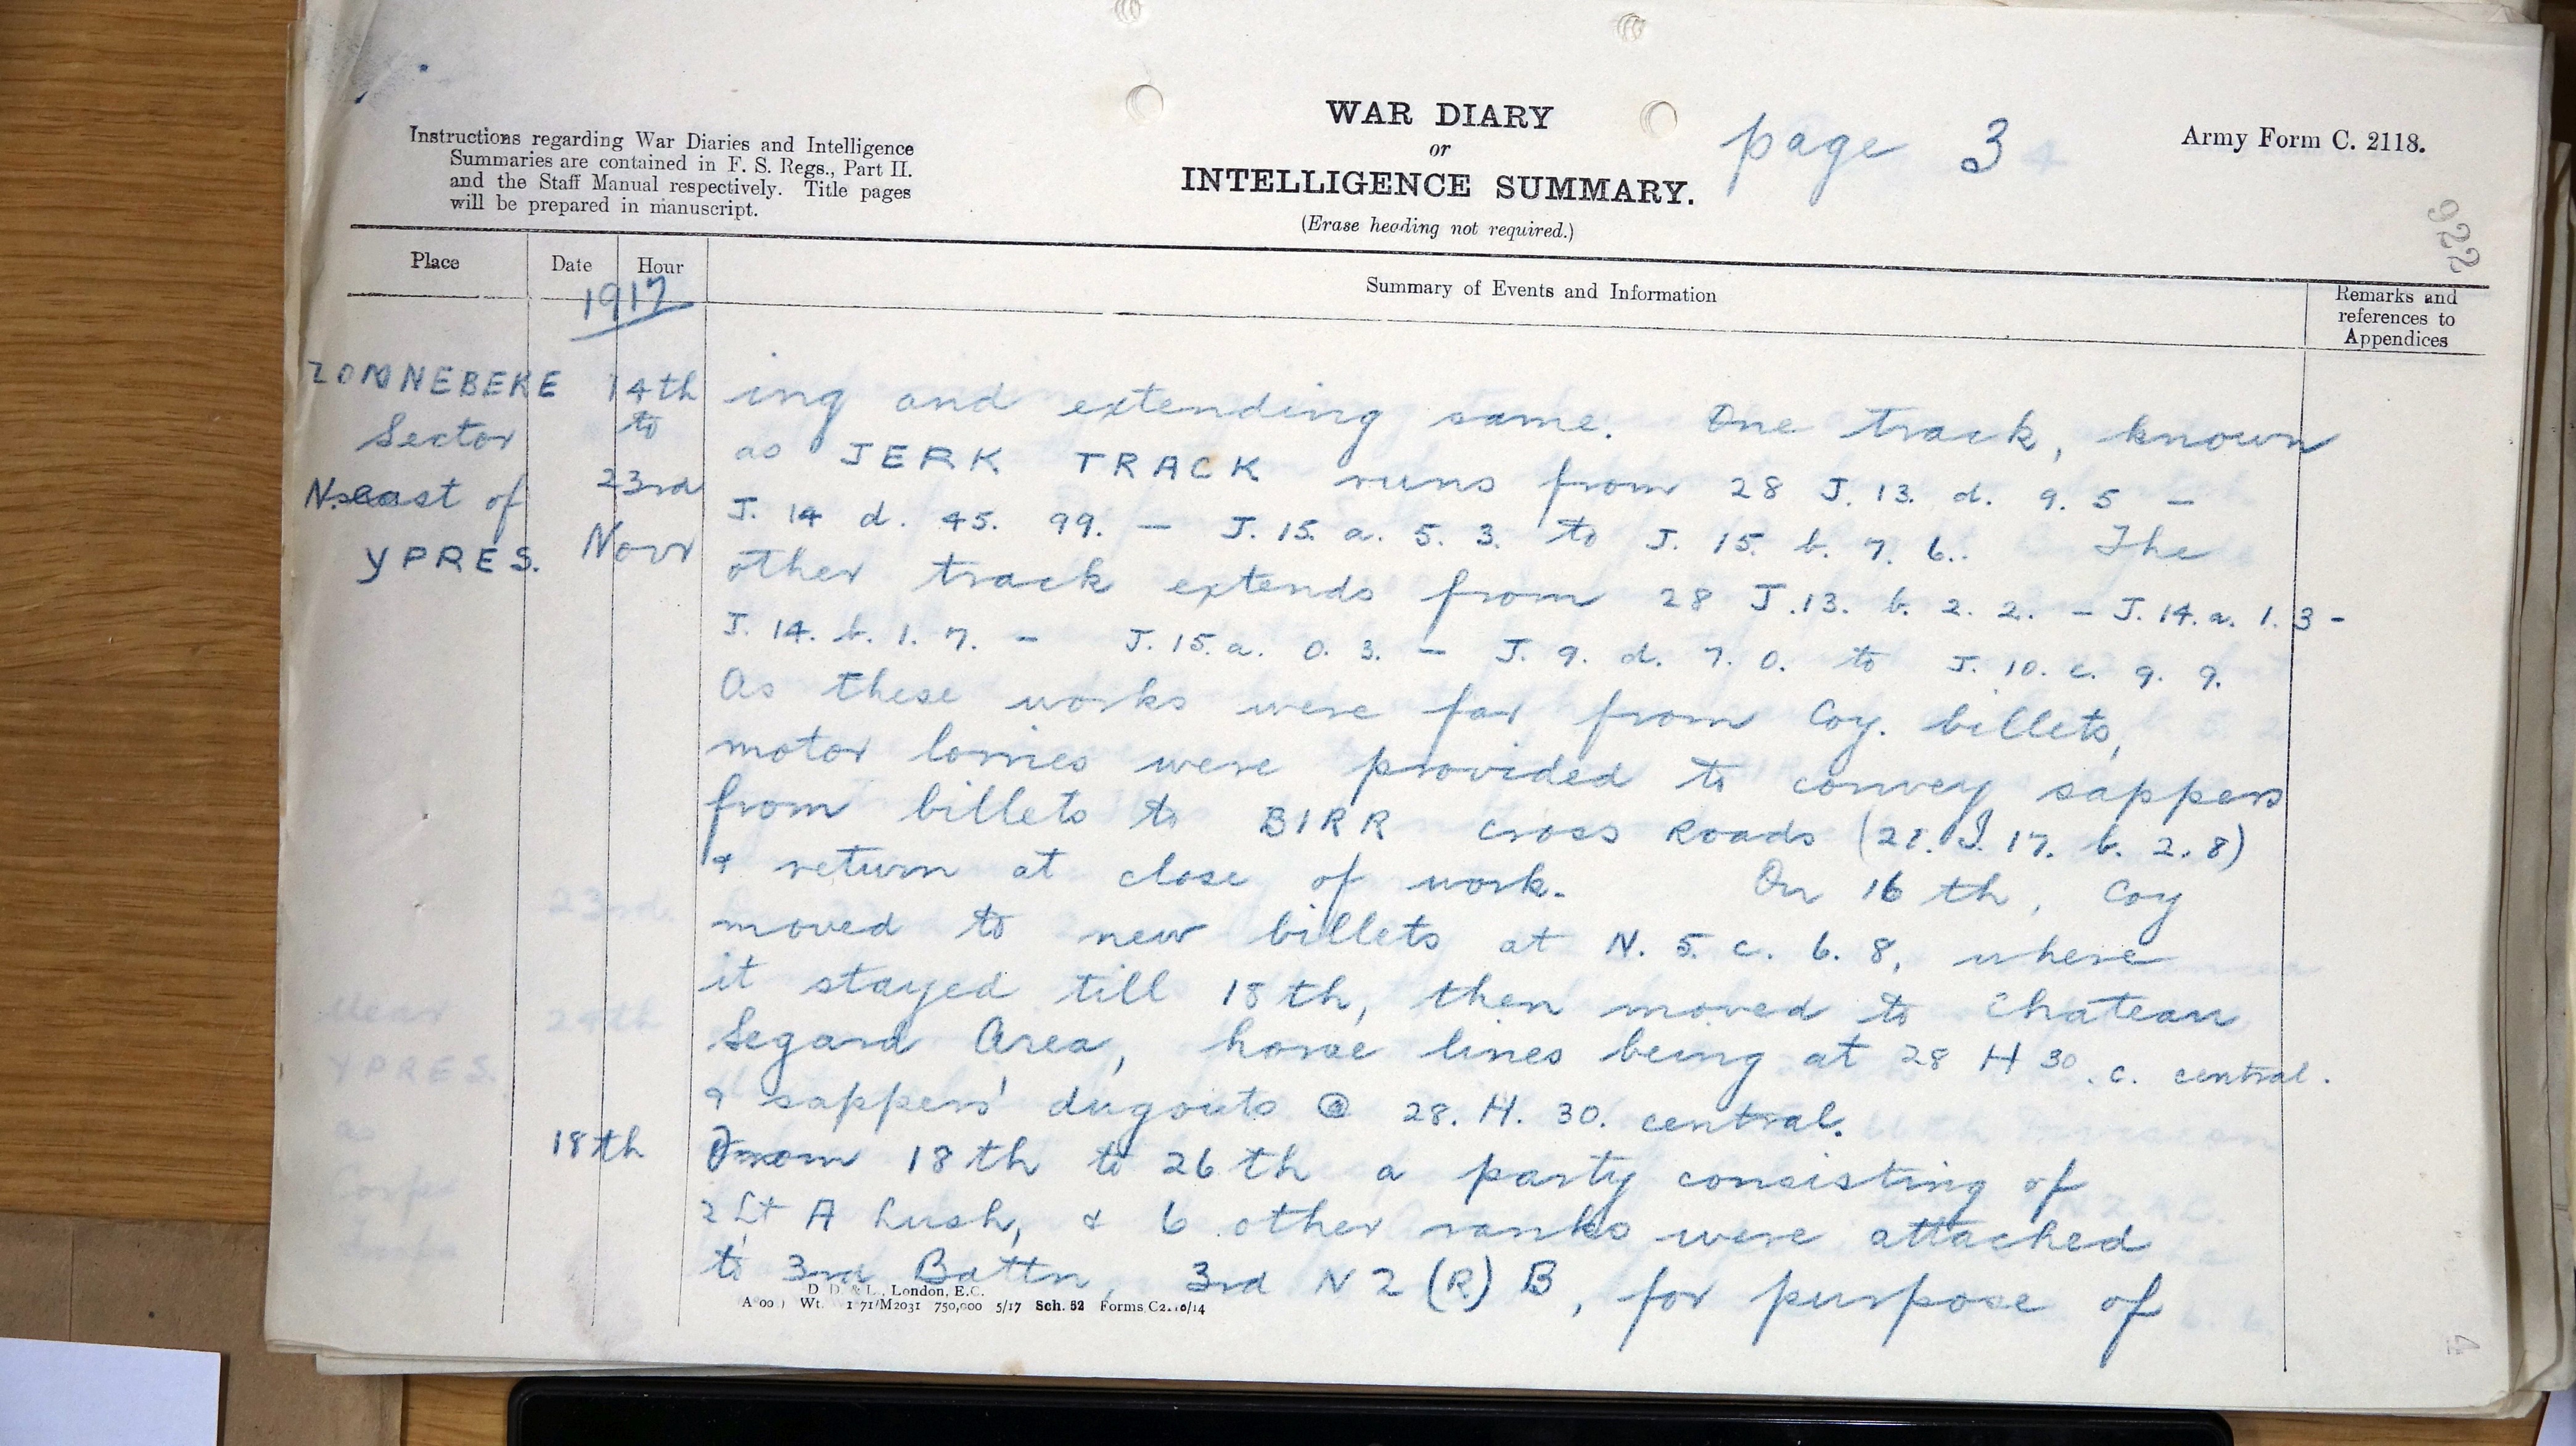 WAR DIARY
or
INTELLIGENCE SUMMARY.
(Erase heading not required.)
page 3
Army Form C. 2118.
922
Instructions regarding War Diaries and Intelligence
Summaries are contained in F. S. Regs., Part II.
and the Staff Manual respectively. Title pages
will be prepared in manuscript.
Place
Date
Hour
Summary of Events and Information
Remarks and
references to
Appendices
1917
ZONNEBEKE
Sector
N.east of
YPRES.
14th
to
23rd
Novr
ing and extending same. One track, known
as JERK TRACK runs from 28 J. 13. d. 9. 5 -
J. 14 d. 45. 99. - J. 15. a. 5. 3. to J. 15. b. 7. 6.. The
other track extends from 28 J.13. b. 2. 2. - J. 14. a. 1. 3 -
J. 14. b. 1. 7. - J. 15. a. 0. 3. - J. 9. d. 7. 0. to J. 10. c. 9. 9.
As these works were far from Coy. billets,
motor lorries were provided to convey sappers
from billets to BIRR cross Roads (21. J. 17. b. 2. 8)
& return at close of work. On 16 th, Coy
moved to new billets at N. 5. c. 6. 8, where
it stayed till 18 th, then moved to Chateau
Segard Area, horse lines being at 28 H 30. c. central.
& sappers' dugouts @ 28. H. 30. central.
18th
From 18 th to 26 th a party consisting of
2 Lt A Lush, & 6 other ranks were attached
to 3rd Battn, 3rd N Z (R) B, for purpose of
D. D. & L., London, E.C.
Wt. 750,000 5/17 Sch. 52 Forms